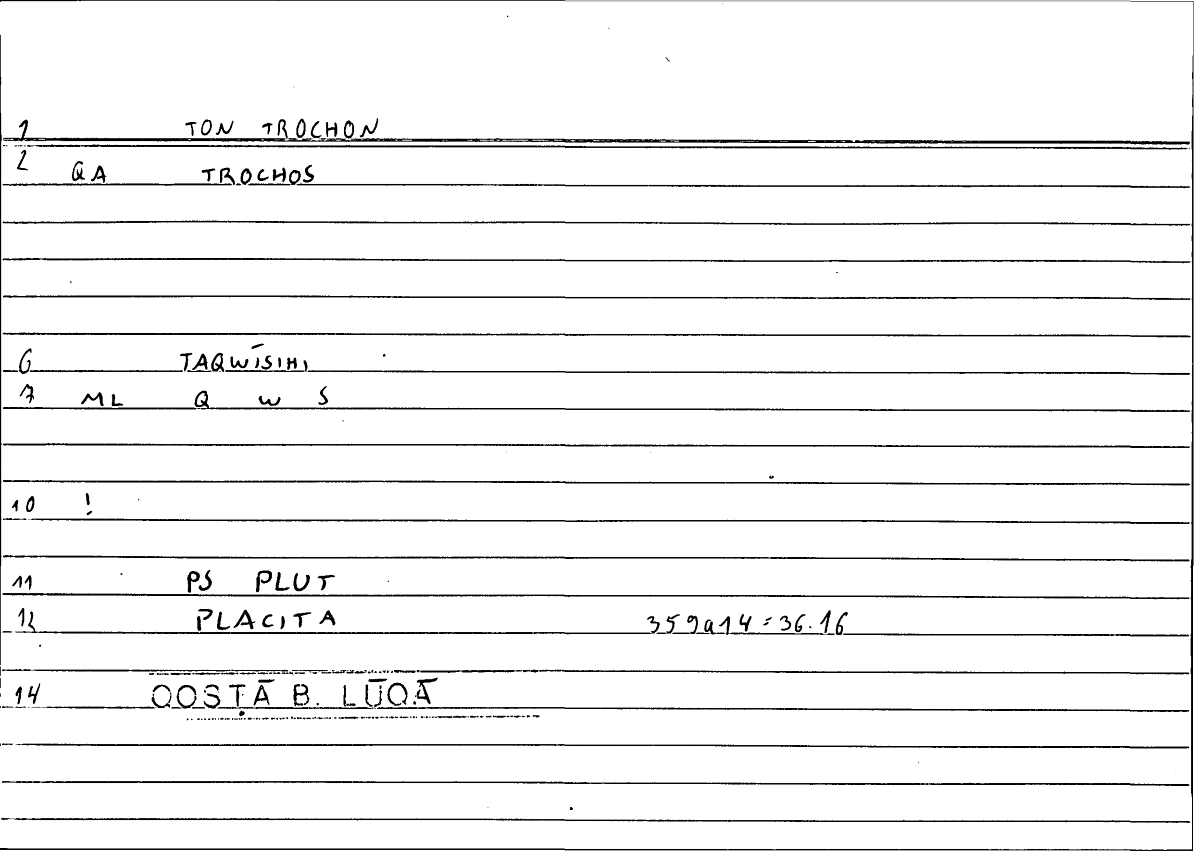 1 TON TROCHON
2 QA TROCHOS
6 TAQWĪSIHI
7 ML Q W S
10 !
11 PS PLUT
12 PLACITA 359a14=36.16
14 QOSṬĀ B. LŪQĀ